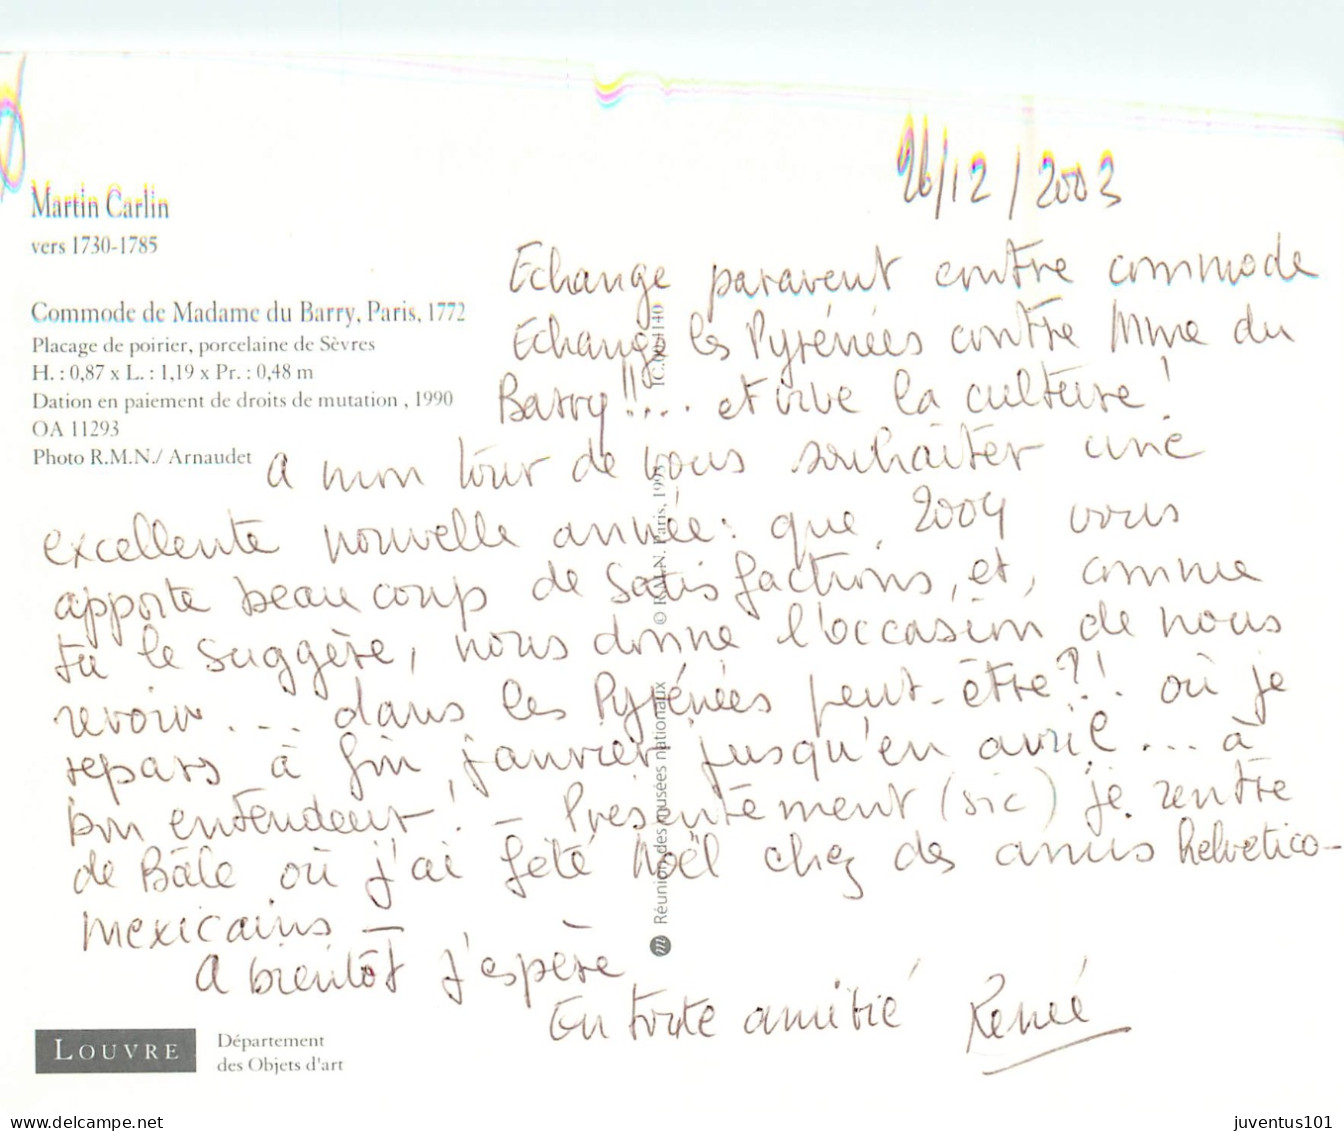 26/12/2003
Martin Carlin
vers 1730-1785
Commode de Madame du Barry, Paris, 1772
Placage de poirier, porcelaine de Sèvres
H. : 0,87 x L. : 1,19 x Pr. : 0,48 m
Dation en paiement de droits de mutation , 1990
OA 11293
Photo R.M.N./ Arnaudet
Echange paravent contre commode
Echange les Pyrénées contre Mme du
Barry!!.... et vive la culture!
A mon tour de vous souhaiter une
excellente nouvelle année: que 2004 vous
apporte beaucoup de satisfactions, et, comme
tu le suggère, nous donne l'occasion de nous
revoir.... dans les Pyrénées peut-être?!. où je
repars à fin janvier jusqu'en avril... à
bon entendeur! - Présentement (sic) je rentre
de Bâle où j'ai fêté Noël chez des amis helvetico-
mexicains -
A bientôt j'espère
En toute amitié Renée
m Réunion des musées nationaux © R.M.N. Paris, 1995
LOUVRE
Département
des Objets d'art
www.delcampe.net
juventus101